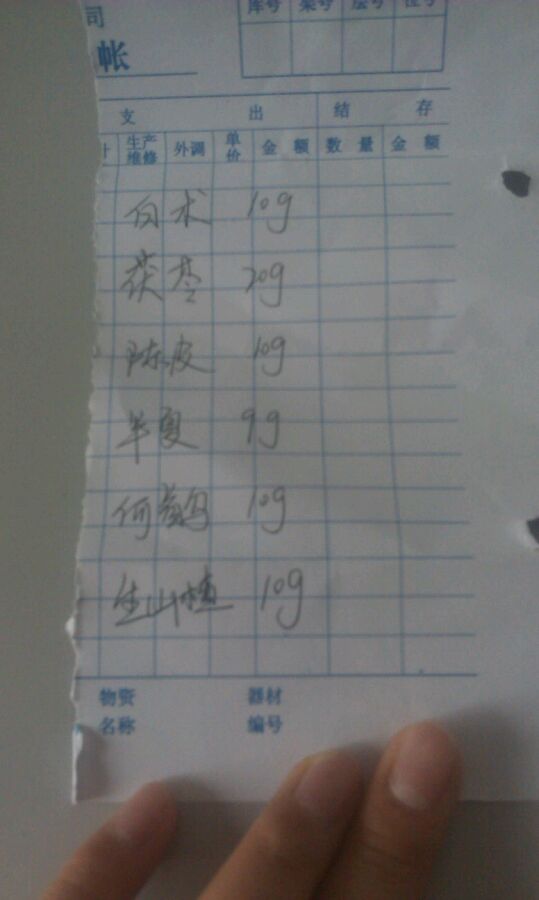 司
库号 架号 层号 位号
帐
支 出 结 存
计 生产维修 外调 单价 金 额 数 量 金 额
白术 10g
茯苓 20g
陈皮 10g
半夏 9g
生山楂 10g
物资 器材
名称 编号